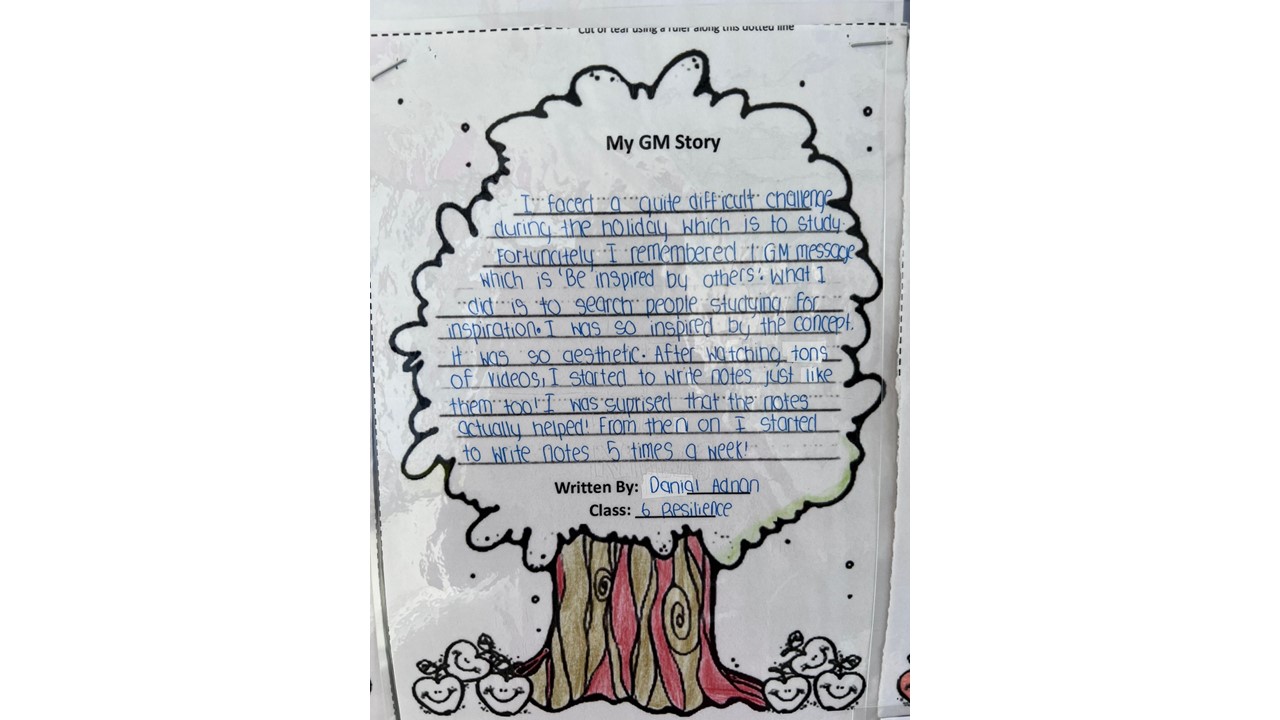 Cut or tear using a ruler along this dotted line
My GM Story
I faced a quite difficult challenge
during the holiday which is to study.
Fortunately I remembered 1 GM message
which is 'Be inspired by others'. What I
did is to search people studying for
inspiration. I was so inspired by the concept.
it was so aesthetic. After watching tons
of videos, I started to write notes just like
them too! I was suprised that the notes
actually helped! From then on I started
to write notes 5 times a week!
Written By: Danial Adnan
Class: 6 Resilience